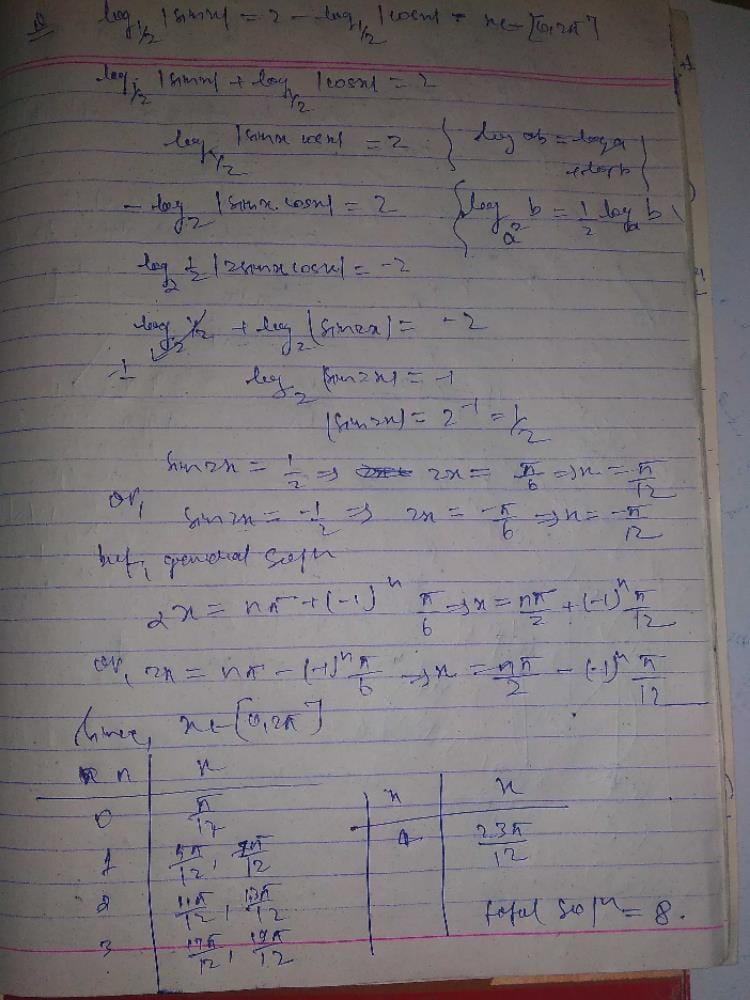 Q log_{1/2} |sinx| = 2 - log_{1/2} |cosx| - x ∈ [0, 2π]
log_{1/2} |sinx| + log_{1/2} |cosx| = 2
log_{1/2} |sinx cosx| = 2 } log ab = log a + log b }
- log_2 |sinx. cosx| = 2 { log_{a^2} b = 1/2 log_a b }
log_2 1/2 |2sinx cosx| = -2
log_2 1/2 + log_2 |sin2x| = -2
-1 log_2 |sin2x| = -1
|sin2x| = 2^{-1} = 1/2
sin2x = 1/2 ⇒ 2x = π/6 ⇒ x = π/12
or, sin2x = -1/2 ⇒ 2x = -π/6 ⇒ x = -π/12
but, general soln
2x = nπ + (-1)^n π/6 ⇒ x = nπ/2 + (-1)^n π/12
or, 2x = nπ - (-1)^n π/6 ⇒ x = nπ/2 - (-1)^n π/12
Since, x ∈ [0, 2π]
n x
0 π/12
1 5π/12, 7π/12
2 11π/12, 13π/12
3 17π/12, 19π/12
n x
4 23π/12
total soln = 8.